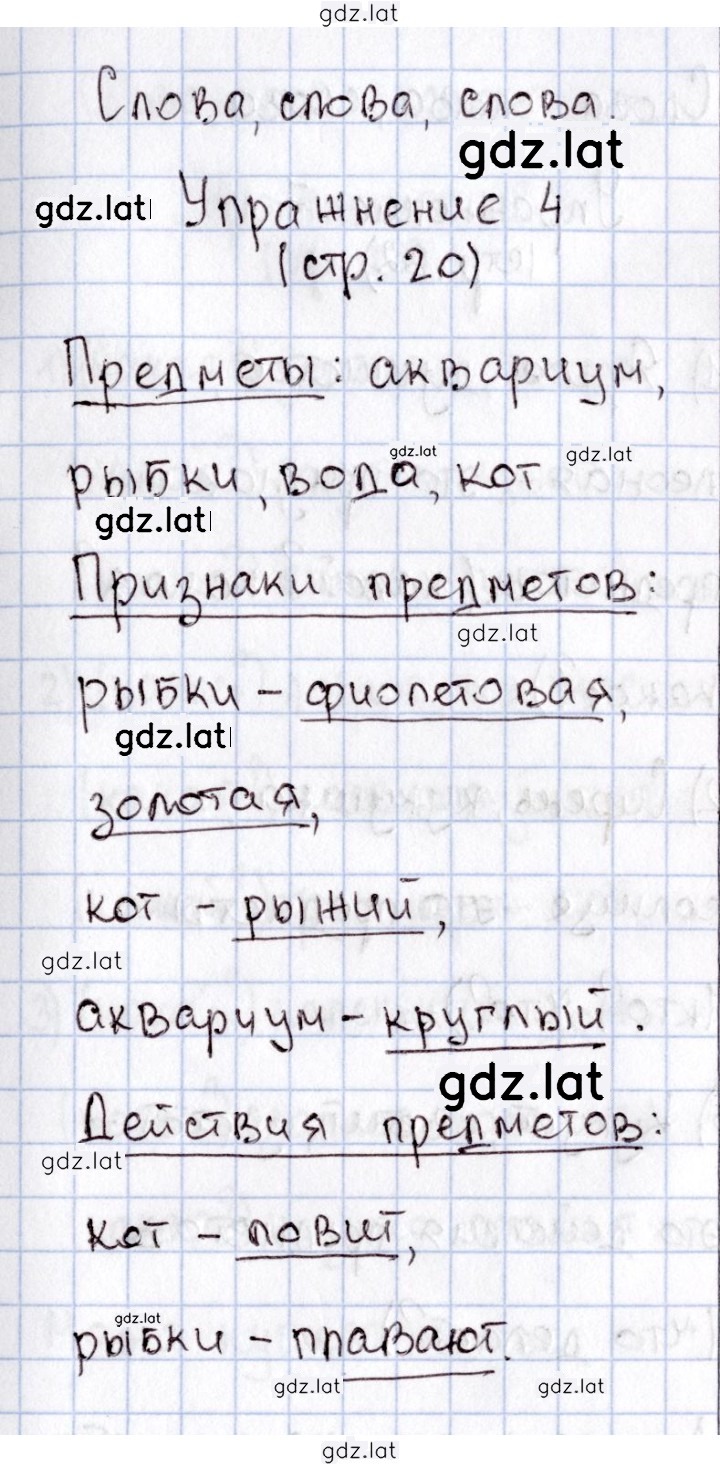 gdz.lat
Слова, слова, слова.
gdz.lat
gdz.lat
Упражнение 4
(стр. 20)
Предметы: аквариум,
gdz.lat
gdz.lat
рыбки, вода, кот
gdz.lat
Признаки предметов:
gdz.lat
рыбки – фиолетовая,
gdz.lat
золотая,
кот – рыжий,
gdz.lat
аквариум – круглый.
gdz.lat
Действия предметов:
gdz.lat
кот – ловит,
gdz.lat
рыбки – плавают.
gdz.lat
gdz.lat
gdz.lat